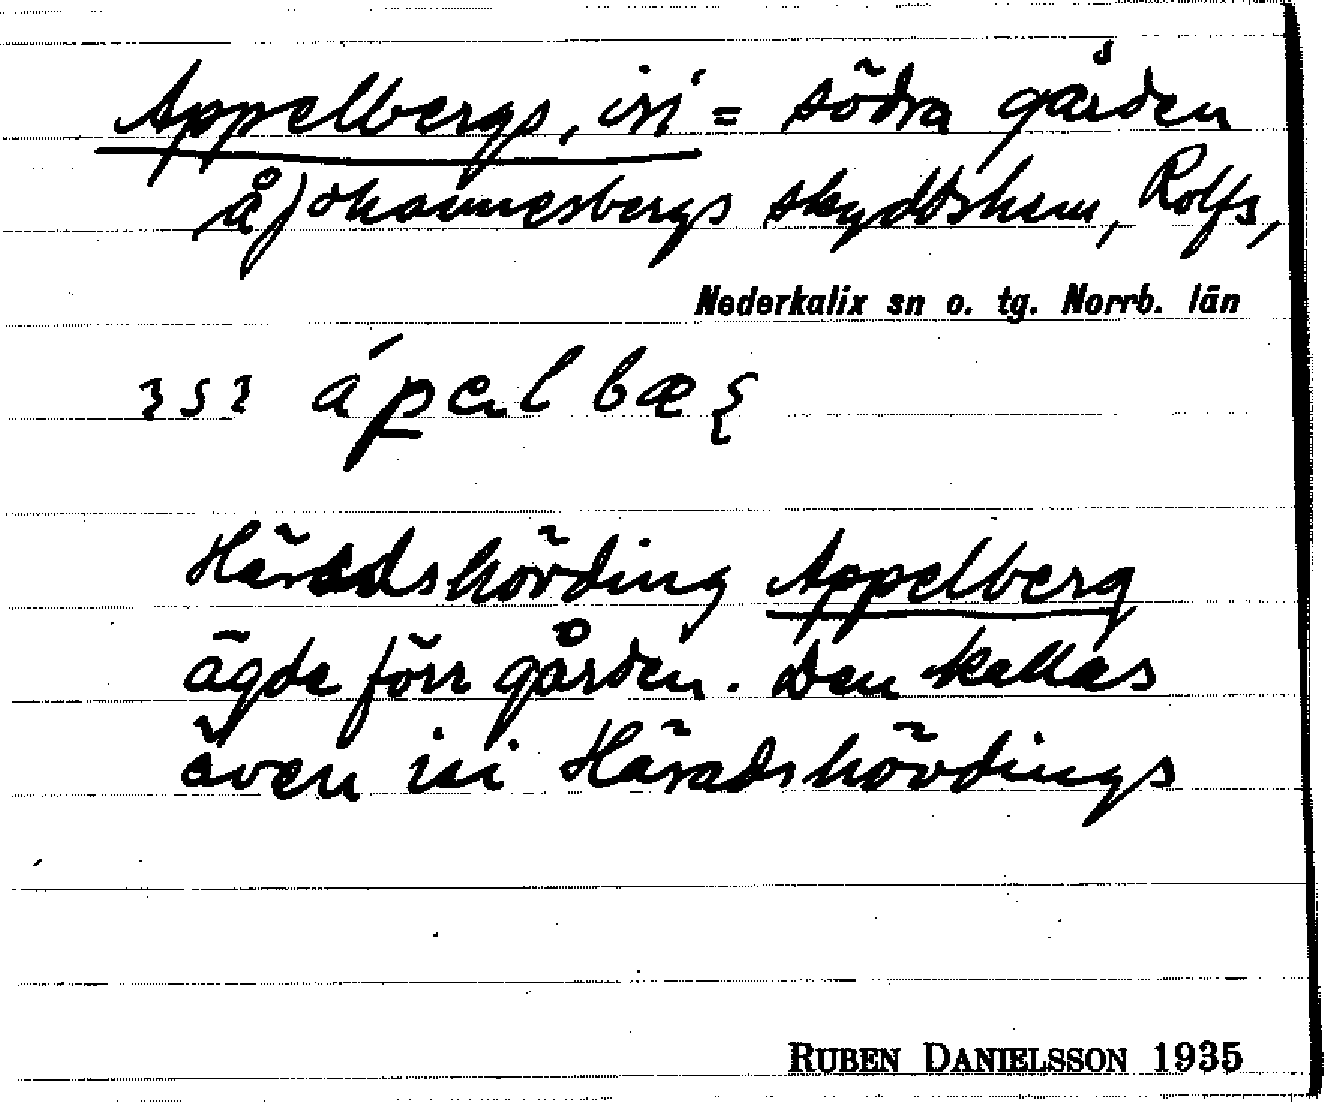 Appelbergs, isi = södra gården
å Johannesbergs skyddshem, Rolfs,
Nederkalix sn o. tg. Norrb. län
Häradshövding Appelberg
ägde förr gården. Den kallas
även isi Häradshövdings
RUBEN DANIELSSON 1935